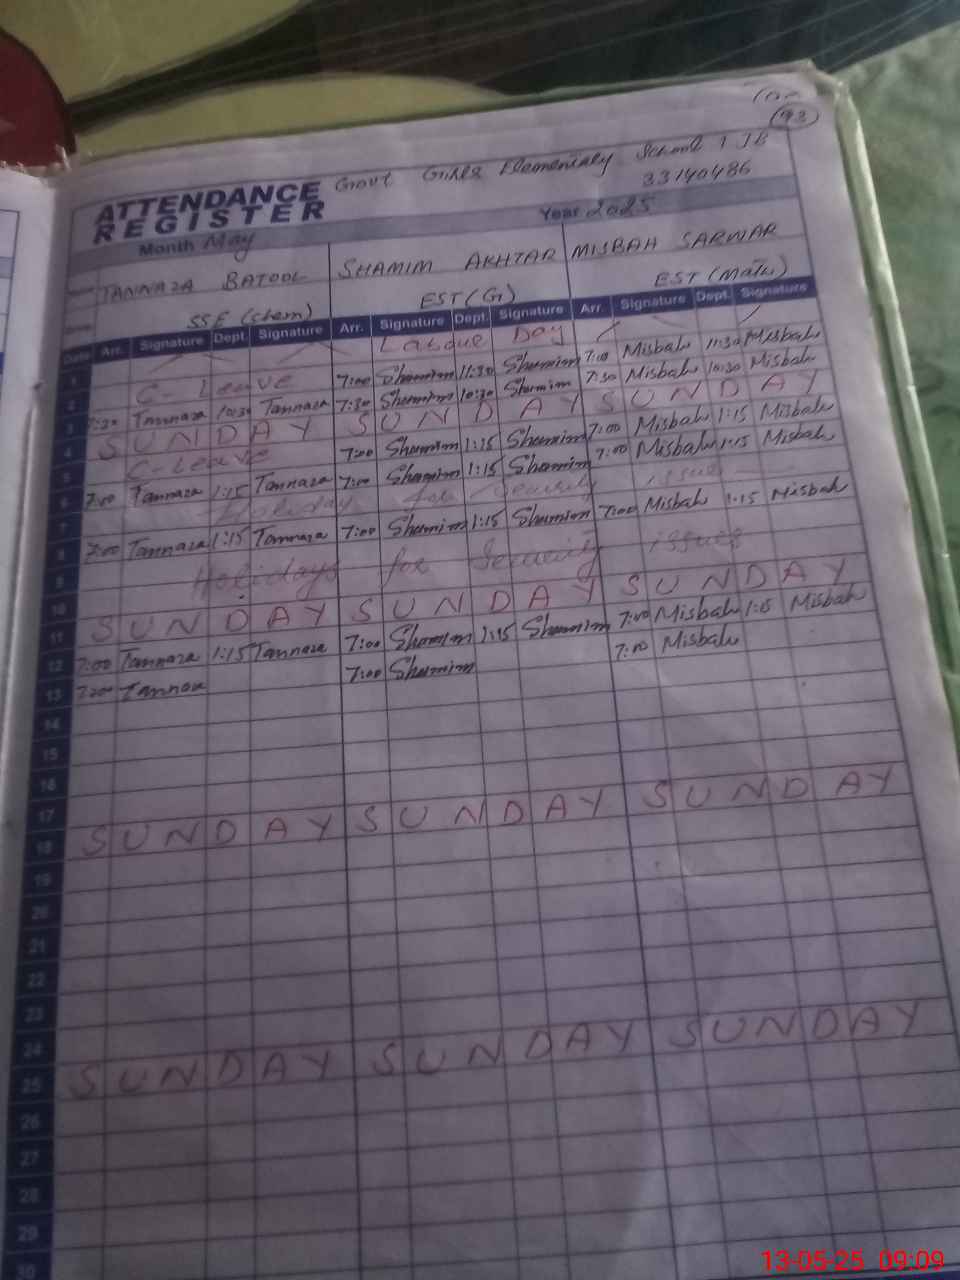 93
ATTENDANCE REGISTER Govt Girls Elementary School 1 JB
33140486
Month May Year 2025
TANNAZA BATOOL SHAMIM AKHTAR MISBAH SARWAR
SSE (Chem) EST (G) EST (Math)
Date Arr. Signature Dept. Signature Arr. Signature Dept. Signature Arr. Signature Dept. Signature
1 Labour Day
2 C-Leave 7:00 Shamim 11:30 Shamim 7:00 Misbah 11:30 Misbah
3 7:30 Tannaza 10:30 Tannaza 7:30 Shamim 10:30 Shamim 7:30 Misbah 10:30 Misbah
4 SUNDAY SUNDAY SUNDAY
5 C-Leave 7:00 Shamim 1:15 Shamim 7:00 Misbah 1:15 Misbah
6 7:00 Tannaza 1:15 Tannaza 7:00 Shamim 1:15 Shamim 7:00 Misbah 1:15 Misbah
7 Holiday for Security issues
8 7:00 Tannaza 1:15 Tannaza 7:00 Shamim 1:15 Shamim 7:00 Misbah 1:15 Misbah
9 Holidays for Security issues
10
11 SUNDAY SUNDAY SUNDAY
12 7:00 Tannaza 1:15 Tannaza 7:00 Shamim 1:15 Shamim 7:00 Misbah 1:15 Misbah
13 7:00 Tannaza 7:00 Shamim 7:00 Misbah
14
15
16
17
18 SUNDAY SUNDAY SUNDAY
19
20
21
22
23
24
25 SUNDAY SUNDAY SUNDAY
26
27
28
29
30
13-05-25 09:09